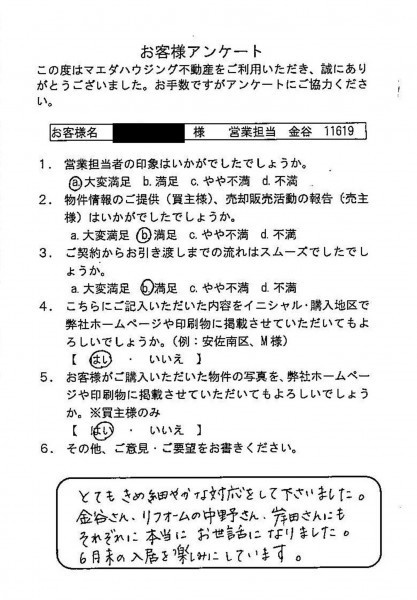 お客様アンケート
この度はマエダハウジング不動産をご利用いただき、誠にあり
がとうございました。お手数ですがアンケートにご協力くださ
い。
お客様名 様 営業担当 金谷 11619
1. 営業担当者の印象はいかがでしたでしょうか。
a.大変満足 b.満足 c.やや不満 d.不満
2. 物件情報のご提供（買主様）、売却販売活動の報告（売主
様）はいかがでしたでしょうか。
a.大変満足 b.満足 c.やや不満 d.不満
3. ご契約からお引き渡しまでの流れはスムーズでしたでし
ょうか。
a.大変満足 b.満足 c.やや不満 d.不満
4. こちらにご記入いただいた内容をイニシャル・購入地区で
弊社ホームページや印刷物に掲載させていただいてもよ
ろしいでしょうか。（例：安佐南区、M様）
【 はい ・ いいえ 】
5. お客様がご購入いただいた物件の写真を、弊社ホームペー
ジや印刷物に掲載させていただいてもよろしいでしょう
か。※買主様のみ
【 はい ・ いいえ 】
6. その他、ご意見・ご要望をお書きください。
とてもきめ細やかな対応をして下さいました。
金谷さん、リフォームの中野さん、岸田さんにも
それぞれに本当にお世話になりました。
6月末の入居を楽しみにしています。